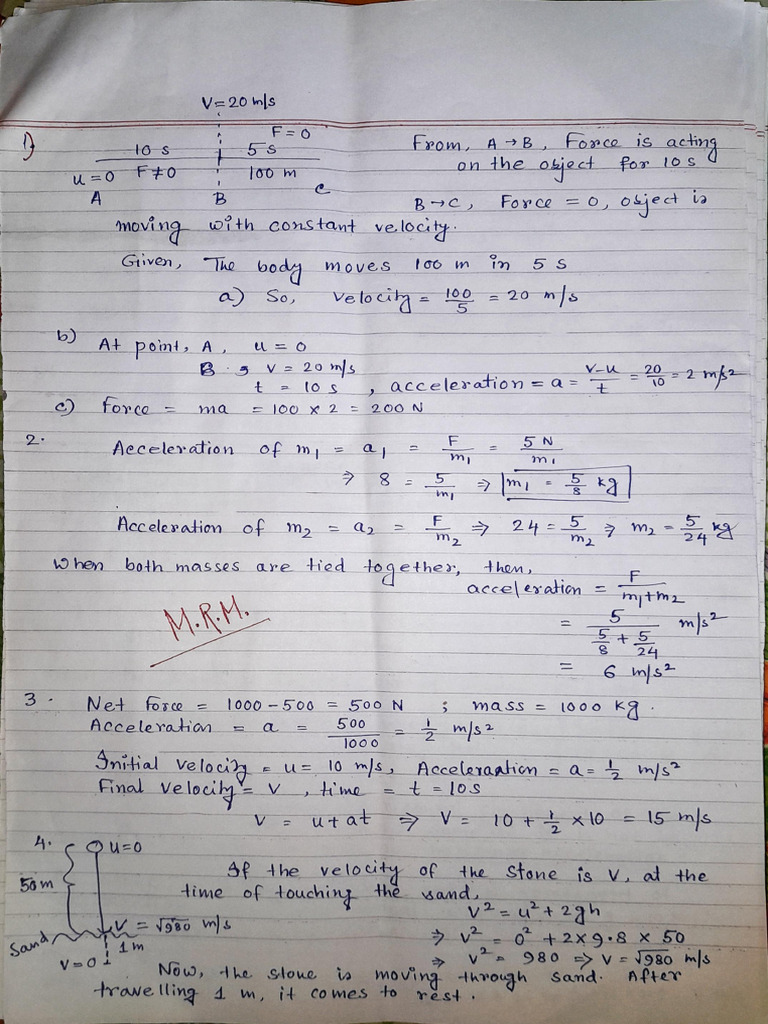 V = 20 m/s
1)
10 s
F = 0
5 s
u = 0
F ≠ 0
100 m
A
B
C
From, A → B, Force is acting
on the object for 10 s
B → C, Force = 0, object is
moving with constant velocity.
Given, The body moves 100 m in 5 s
a) So, velocity = 100/5 = 20 m/s
b) At point, A, u = 0
B, v = 20 m/s
t = 10 s, acceleration = a = V-u/t = 20/10 = 2 m/s²
c) Force = ma = 100 × 2 = 200 N
2. Acceleration of m₁ = a₁ = F/m₁ = 5 N/m₁
⇒ 8 = 5/m₁ ⇒ m₁ = 5/8 kg
Acceleration of m₂ = a₂ = F/m₂ ⇒ 24 = 5/m₂ ⇒ m₂ = 5/24 kg
When both masses are tied together, then,
acceleration = F/m₁+m₂
= 5/(5/8 + 5/24) m/s²
= 6 m/s²
M.R.M.
3. Net force = 1000 - 500 = 500 N ; mass = 1000 kg.
Acceleration = a = 500/1000 = 1/2 m/s²
Initial velocity = u = 10 m/s, Acceleraation = a = 1/2 m/s²
Final velocity = v, time = t = 10 s
V = u + at ⇒ V = 10 + 1/2 × 10 = 15 m/s
4.
u = 0
50 m
If the velocity of the stone is V, at the
time of touching the sand,
V² = u² + 2gh
V = √980 m/s
⇒ V² = 0² + 2 × 9.8 × 50
Sand
1 m
⇒ V² = 980 ⇒ V = √980 m/s
V = 0
Now, the stone is moving through sand. After
travelling 1 m, it comes to rest.